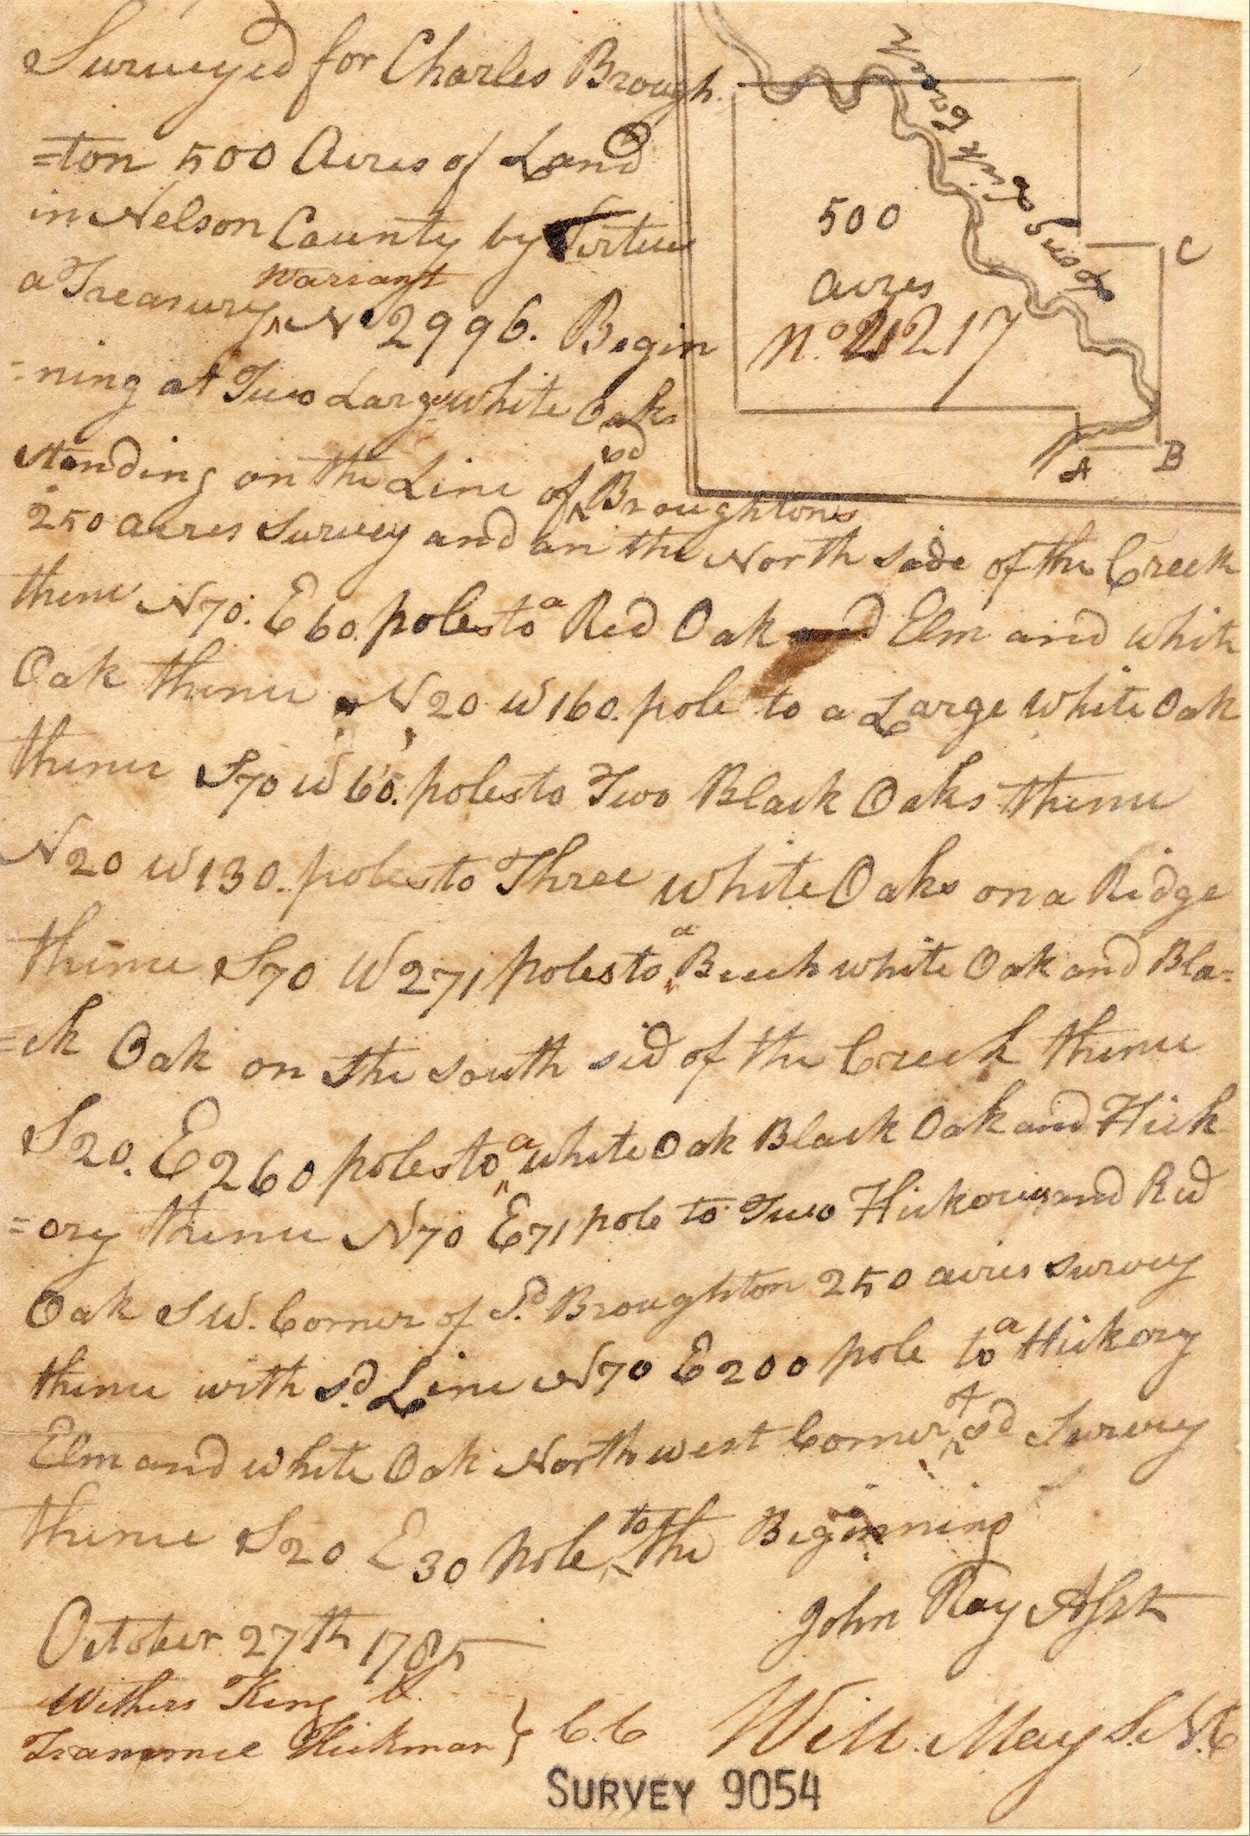 Surveyed for Charles Brough
=ton 500 Acres of Land
in Nelson County by Virtue
a Treasury Warrant No 2996. Begin
=ning at Two Large white Oaks
standing on the Line of sd Broughtons
250 acres survey and on the North side of the Creek
thence N70. E60. poles to a Red Oak and Elm and white
Oak thence N20 W160. pole to a Large white Oak
thence S70 W65. poles to Two Black Oaks thence
N20 W130. poles to Three white Oaks on a Ridge
thence S70 W271 poles to a Beech white Oak and Bla=
=ck Oak on the south sid of the Creek thence
S20. E260 poles to a white Oak Black Oak and Hick
=ory thence N70 E71 pole to Two Hickorys and Red
Oak SW. Corner of Sd. Broughton 250 acres survey
thence with sd. Line N70 E200 pole to a Hickory
Elm and white Oak North west Corner of sd Survey
thence S20 E30 pole to the Beginning
John Ray Asst
October 27th 1785
Withers King &
Hickman } C.C
Will. May S.N.C
500
Acres
No. 21217
Fork of
A
B
C
SURVEY 9054